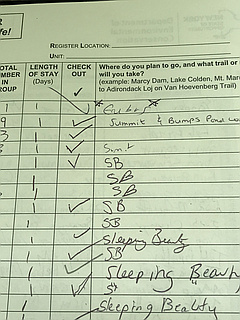 R
fe!
REGISTER LOCATION:
UNIT:
TOTAL NUMBER IN GROUP
LENGTH OF STAY (Days)
CHECK OUT ✓
Where do you plan to go, and what trail or
will you take?
(example: Marcy Dam, Lake Colden, Mt. Marc
to Adirondack Loj on Van Hoevenberg Trail)
1 1
9 1 ✓ Summit & Bumps Pond
3 1 ✓
1 ✓
✓ SB
1 SB
1 SB
1 ✓ SB
1 SB
1 ✓ Sleeping Beauty
✓ SB
1 ✓ Sleeping Beauty
1 ✓
1 Sleeping Beauty